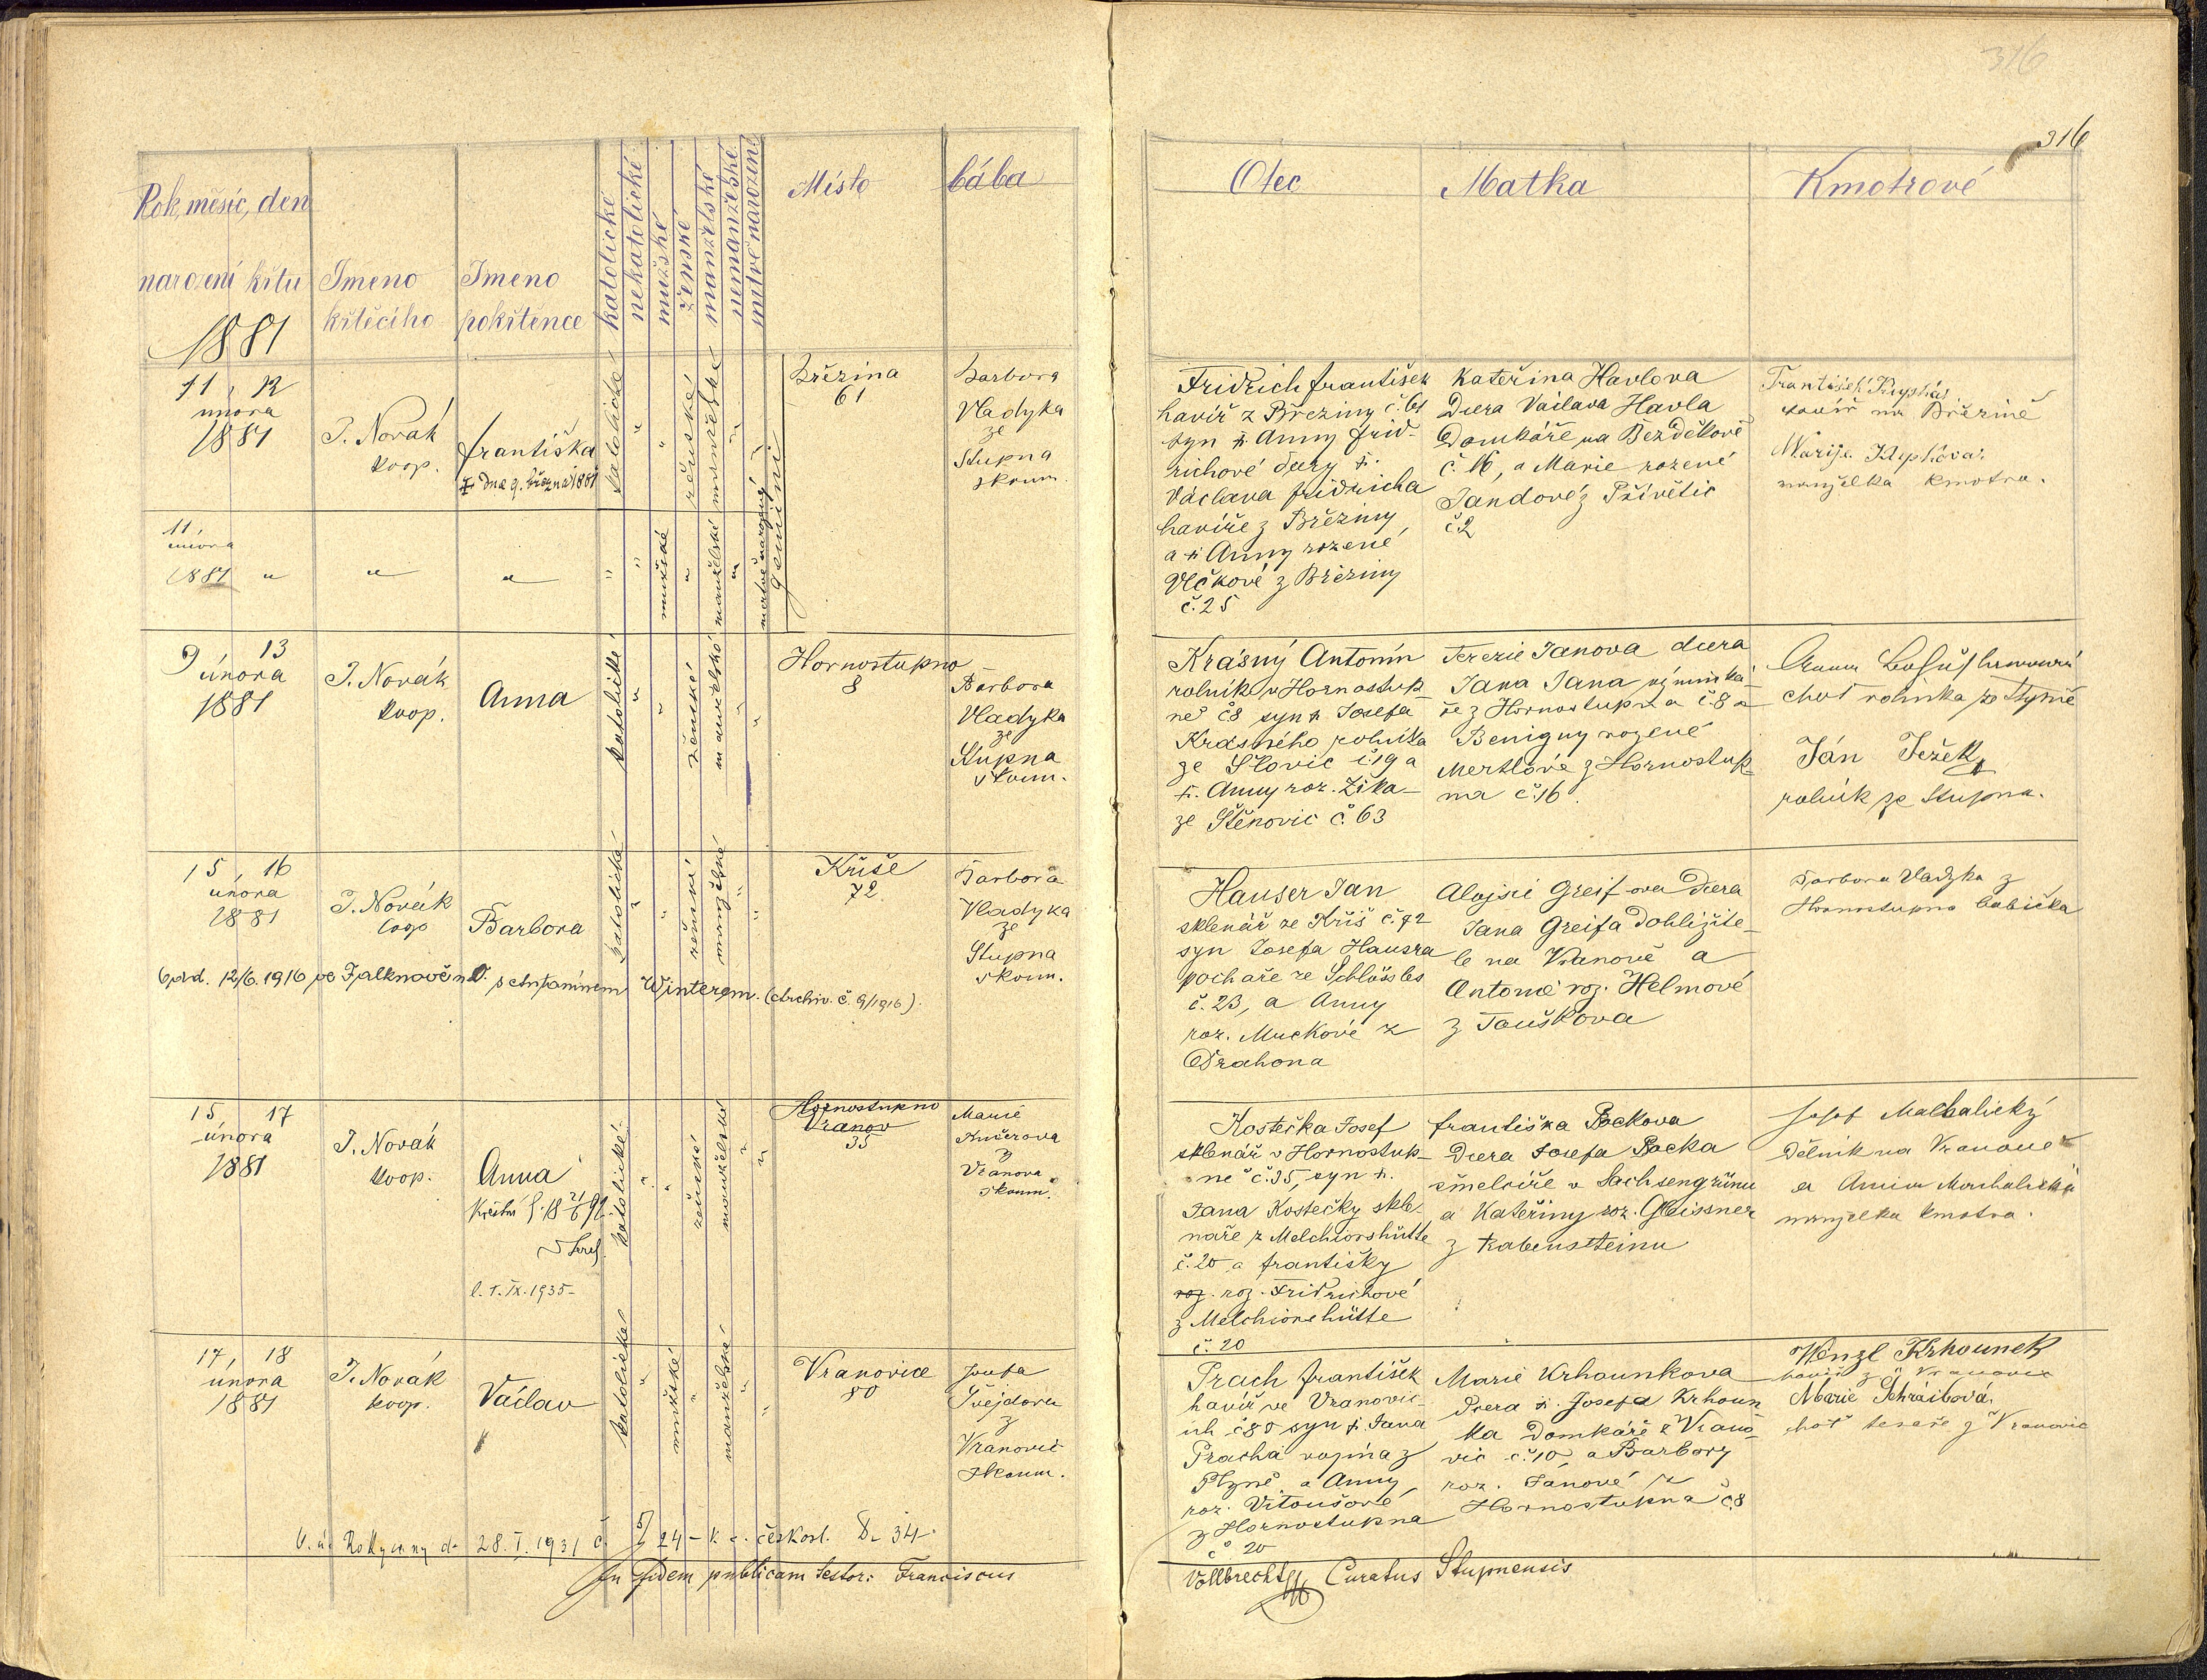 316
316
Rok, měsíc, den
narození křtu
1881
Jmeno
křtěcího
Jmeno
pokřtěnce
katolické
nekatolické
mužské
ženské
manželské
nemanželské
mrtvě narozené
Místo
bába
Otec
Matka
Kmotrové
11, 12
února
1881
J. Novák
koop.
Františka
† dne 9. března 1881
katolické
"
"
ženské
manželské
"
"
gemini
Březina
61
Barbora
Vladyka
ze
Stupna
zkoum.
Fridrich František
havíř z Březiny č. 61
syn † Anny Frid-
richové dcery †.
Václava Fridricha
havíře z Březiny,
a † Anny rozené
Vlčkové z Březiny
č. 25
Kateřina Havlova
Dcera Václava Havla
Domkáře na Bezděkově
č. 16, a Marie rozené
Jandové z Přívětic
č 2
František
havíř na Březině
Marije
manželka kmotra.
11,
února
1881 "
"
"
"
"
mužské
"
manželské
"
mrtvě narozený
9, 13
února
1881
J. Novák
koop.
Anna
katolické
"
"
ženské
manželské
"
"
Hornostupno
8
Barbora
Vladyka
ze
Stupna
zkoum.
Krásný Antonín
rolník v Hornostup-
ně č 8 syn † Josefa
Krásného rolníka
ze Slovic č. 19 a
†. Anny roz. Zika-
ze Štěnovic č. 63
Terezie Janova dcera
Jana Jana výminká-
ře z Hornostupna č. 8 a
Benigny rozené
Mertlové z Hornostup-
na č. 16.
Anna
choť rolníka ze Stupna
Ján Ježek
rolník ze Stupna.
15, 16
února
1881
J. Novák
koop
Barbora
katolické
"
"
ženské
manželské
"
"
Kříše
72
Barbora
Vladyka
ze
Stupna
zkoum.
Hauser Jan
sklenář ze Kříš č. 72
syn Josefa Hausra
pochaře ze Schlössles
č. 23, a Anny
roz. Muckové z
Odrahona
Alojsie Greif-ova Dcera
Jana Greifa Dohlížite-
le na Vranově a
Antonie roz. Helmové
z Touškova
Barbora Vladyka z
Hornostupna babička
Odd. 12/6. 1916 ve Falknově n. O. s Winterem. (Archiv. č. 9/1916).
15, 17
února
1881
J. Novák
koop.
Anna
l. 1. IX. 1935
katolické
"
"
ženské
manželské
"
"
Hornostupno
Vranov
35
Marie
Kučerova
z
Vranova
zkoum.
Kostečka Josef
sklenář v Hornostup-
ně č. 35, syn †.
Jana Kostečky skle-
náře z Melchiorshütte
č. 20 a Františky
roz. roz. Fridrichové
z Melchiorshütte
č. 20
Františka Bockova
Dcera Josefa Bocka
čmelcíře v Sachsengrünu
a Kateřiny roz. Gleissner
z Rabensteinu
Josef Malhalický
Dělník na Vranově
a Anna
manželka kmotra.
17, 18
února
1881
J. Novák
koop.
Václav
katolické
"
mužské
"
manželské
"
"
Vranovice
80
Josefa
Švejdova
z
Vranovic
zkoum.
Prach František
havíř ve Vranovic-
ích č 80 syn †. Jana
Pracha vojína z
Plzně, a Anny
roz. Vitoušové
z Hornostupna
č. 20
Marie Krhounkova
Dcera †. Josefa Krhoun
ka Domkáře z Vrano-
vic č. 10, a Barbory
roz. Jánové z
Hornostupna č. 8
Wenzl Krhounek
havíř z Vranovic
Marie Schraibová.
choť tesaře z Vranovic
O. ú. Rokycany d. 28. I. 1931 č. 5/24 českosl. 34
In fidem publicam testor: Franciscus
Vollbrecht Curatus Stupnensis